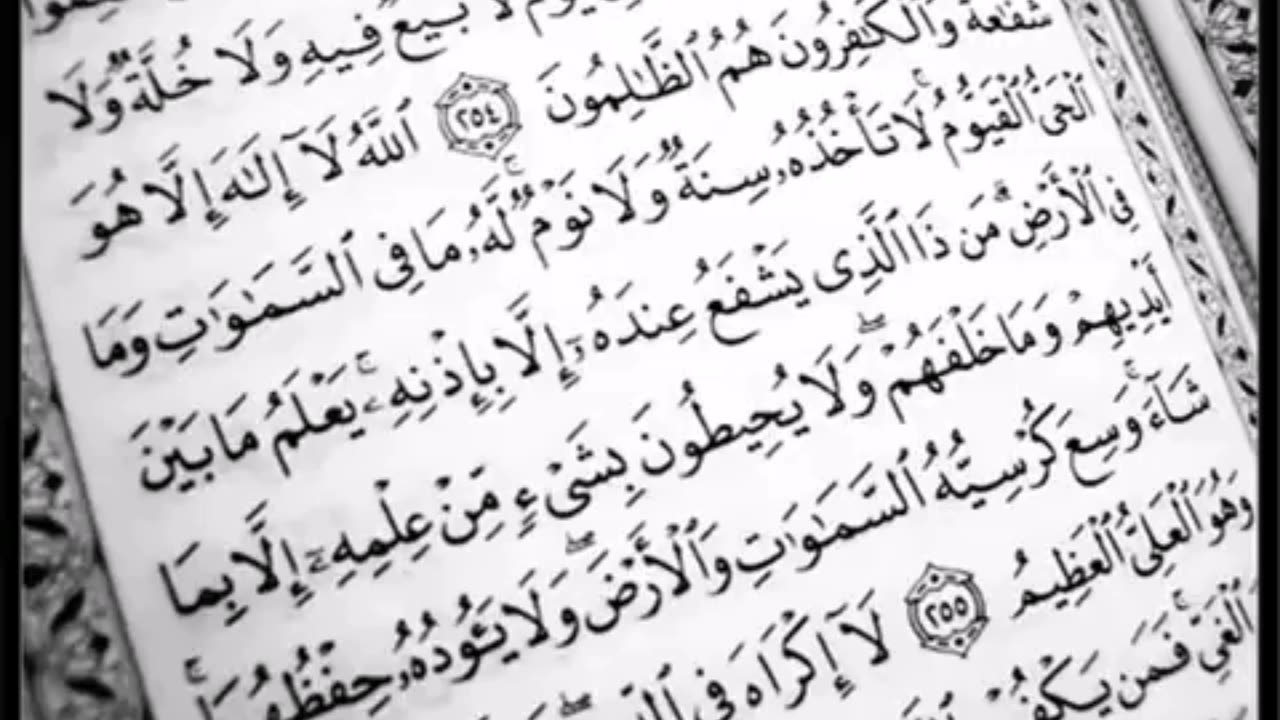 لَّا بَيْعٌ فِيهِ وَلَا خُلَّةٌ وَلَا
شَفَٰعَةٌ وَٱلْكَٰفِرُونَ هُمُ ٱلظَّٰلِمُونَ ٢٥٤ ٱللَّهُ لَآ إِلَٰهَ إِلَّا هُوَ
ٱلْحَىُّ ٱلْقَيُّومُ ۚ لَا تَأْخُذُهُۥ سِنَةٌ وَلَا نَوْمٌ ۚ لَّهُۥ مَا فِى ٱلسَّمَٰوَٰتِ وَمَا
فِى ٱلْأَرْضِ ۗ مَن ذَا ٱلَّذِى يَشْفَعُ عِندَهُۥٓ إِلَّا بِإِذْنِهِۦ ۚ يَعْلَمُ مَا بَيْنَ
أَيْدِيهِمْ وَمَا خَلْفَهُمْ ۖ وَلَا يُحِيطُونَ بِشَىْءٍ مِّنْ عِلْمِهِۦٓ إِلَّا بِمَا
شَآءَ ۚ وَسِعَ كُرْسِيُّهُ ٱلسَّمَٰوَٰتِ وَٱلْأَرْضَ ۖ وَلَا يَـُٔودُهُۥ حِفْظُهُمَا ۚ
وَهُوَ ٱلْعَلِىُّ ٱلْعَظِيمُ ٢٥٥ لَآ إِكْرَاهَ فِى
ٱلْغَىِّ ۚ فَمَن يَكْفُرْ